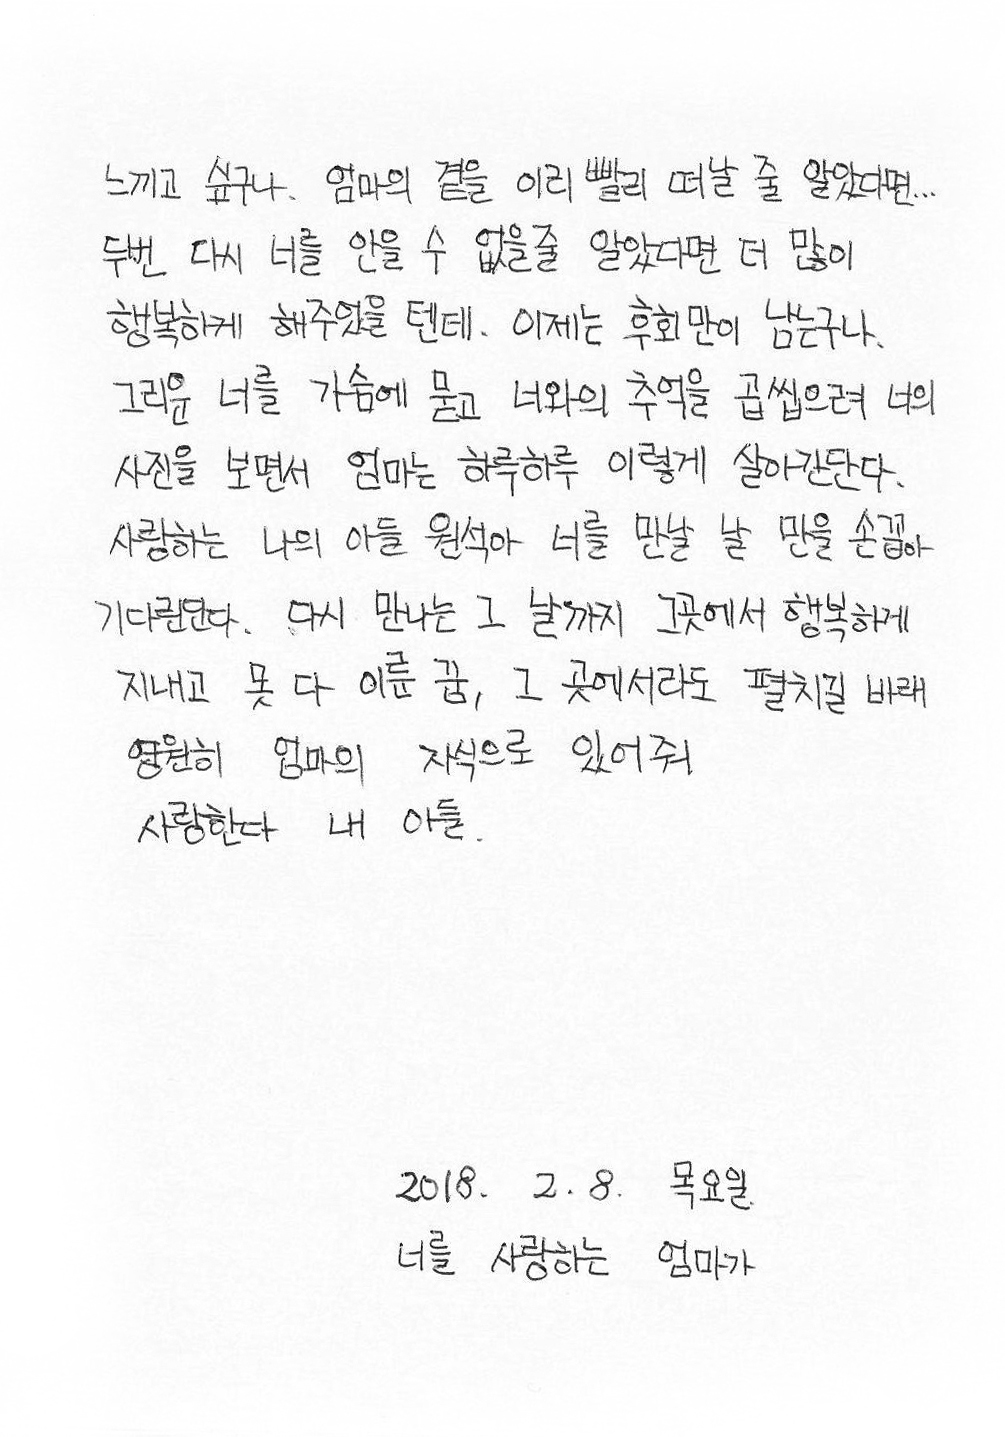 느끼고 싶구나. 엄마의 곁을 이리 빨리 떠날 줄 알았다면...
두번 다시 너를 안을 수 없을줄 알았다면 더 많이
행복하게 해주었을 텐데. 이제는 후회만이 남는구나.
그리운 너를 가슴에 묻고 너와의 추억을 곱씹으려 너의
사진을 보면서 엄마는 하루하루 이렇게 살아간단다.
사랑하는 나의 아들 원석아 너를 만날 날 만을 손꼽아
기다린단다. 다시 만나는 그 날까지 그곳에서 행복하게
지내고 못 다 이룬 꿈, 그 곳에서라도 펼치길 바래
영원히 엄마의 자식으로 있어줘
사랑한다 내 아들.
2018. 2. 8. 목요일.
너를 사랑하는 엄마가